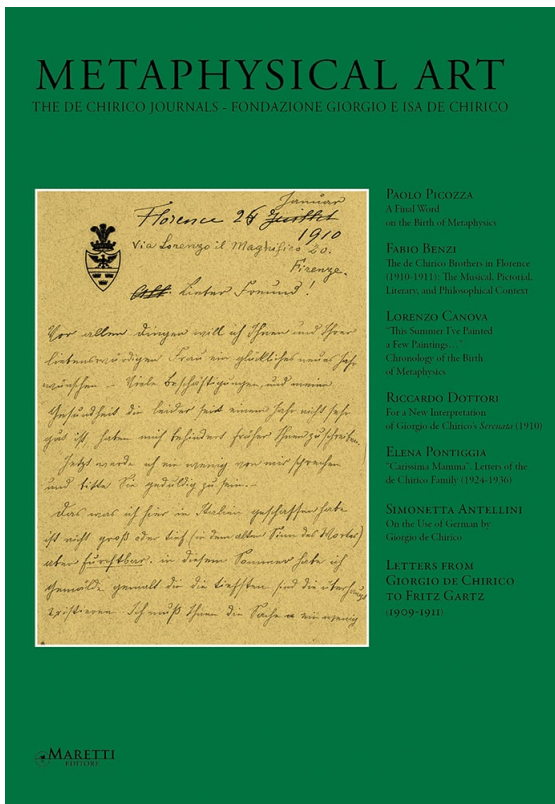 METAPHYSICAL ART
THE DE CHIRICO JOURNALS - FONDAZIONE GIORGIO E ISA DE CHIRICO
Januar
Florence 26 Juillet
1910
Via Lorenzo il Magnifico 20.
Firenze.
Lieber Freund!
Vor allen Dingen will ich Ihnen und Ihrer
liebenswürdigen Frau ein glückliches neues Jahr
wünschen. Viele Beschäftigungen, und meine
Gesundheit die leider seit einem Jahr nicht sehr
gut ist, haben mich behindert früher Ihnen zu schreiben.
Jetzt werde ich ein wenig von mir sprechen
und bitte Sie geduldig zu sein.
Das was ich hier in Italien geschaffen habe
ist nicht groß oder tief (in dem alten Sinn des Wortes)
aber furchtbar. in diesem Sommer habe ich
Gemälde gemalt die die tiefsten sind die überhaupt
existieren. Ich muß Ihnen die Sache ein wenig
PAOLO PICOZZA
A Final Word
on the Birth of Metaphysics
FABIO BENZI
The de Chirico Brothers in Florence
(1910-1911): The Musical, Pictorial,
Literary, and Philosophical Context
LORENZO CANOVA
"This Summer I've Painted
a Few Paintings…"
Chronology of the Birth
of Metaphysics
RICCARDO DOTTORI
For a New Interpretation
of Giorgio de Chirico's Serenata (1910)
ELENA PONTIGGIA
"Carissima Mamina". Letters of the
de Chirico Family (1924-1936)
SIMONETTA ANTELLINI
On the Use of German by
Giorgio de Chirico
LETTERS FROM
GIORGIO DE CHIRICO
TO FRITZ GARTZ
(1909-1911)
MARETTI
EDITORE